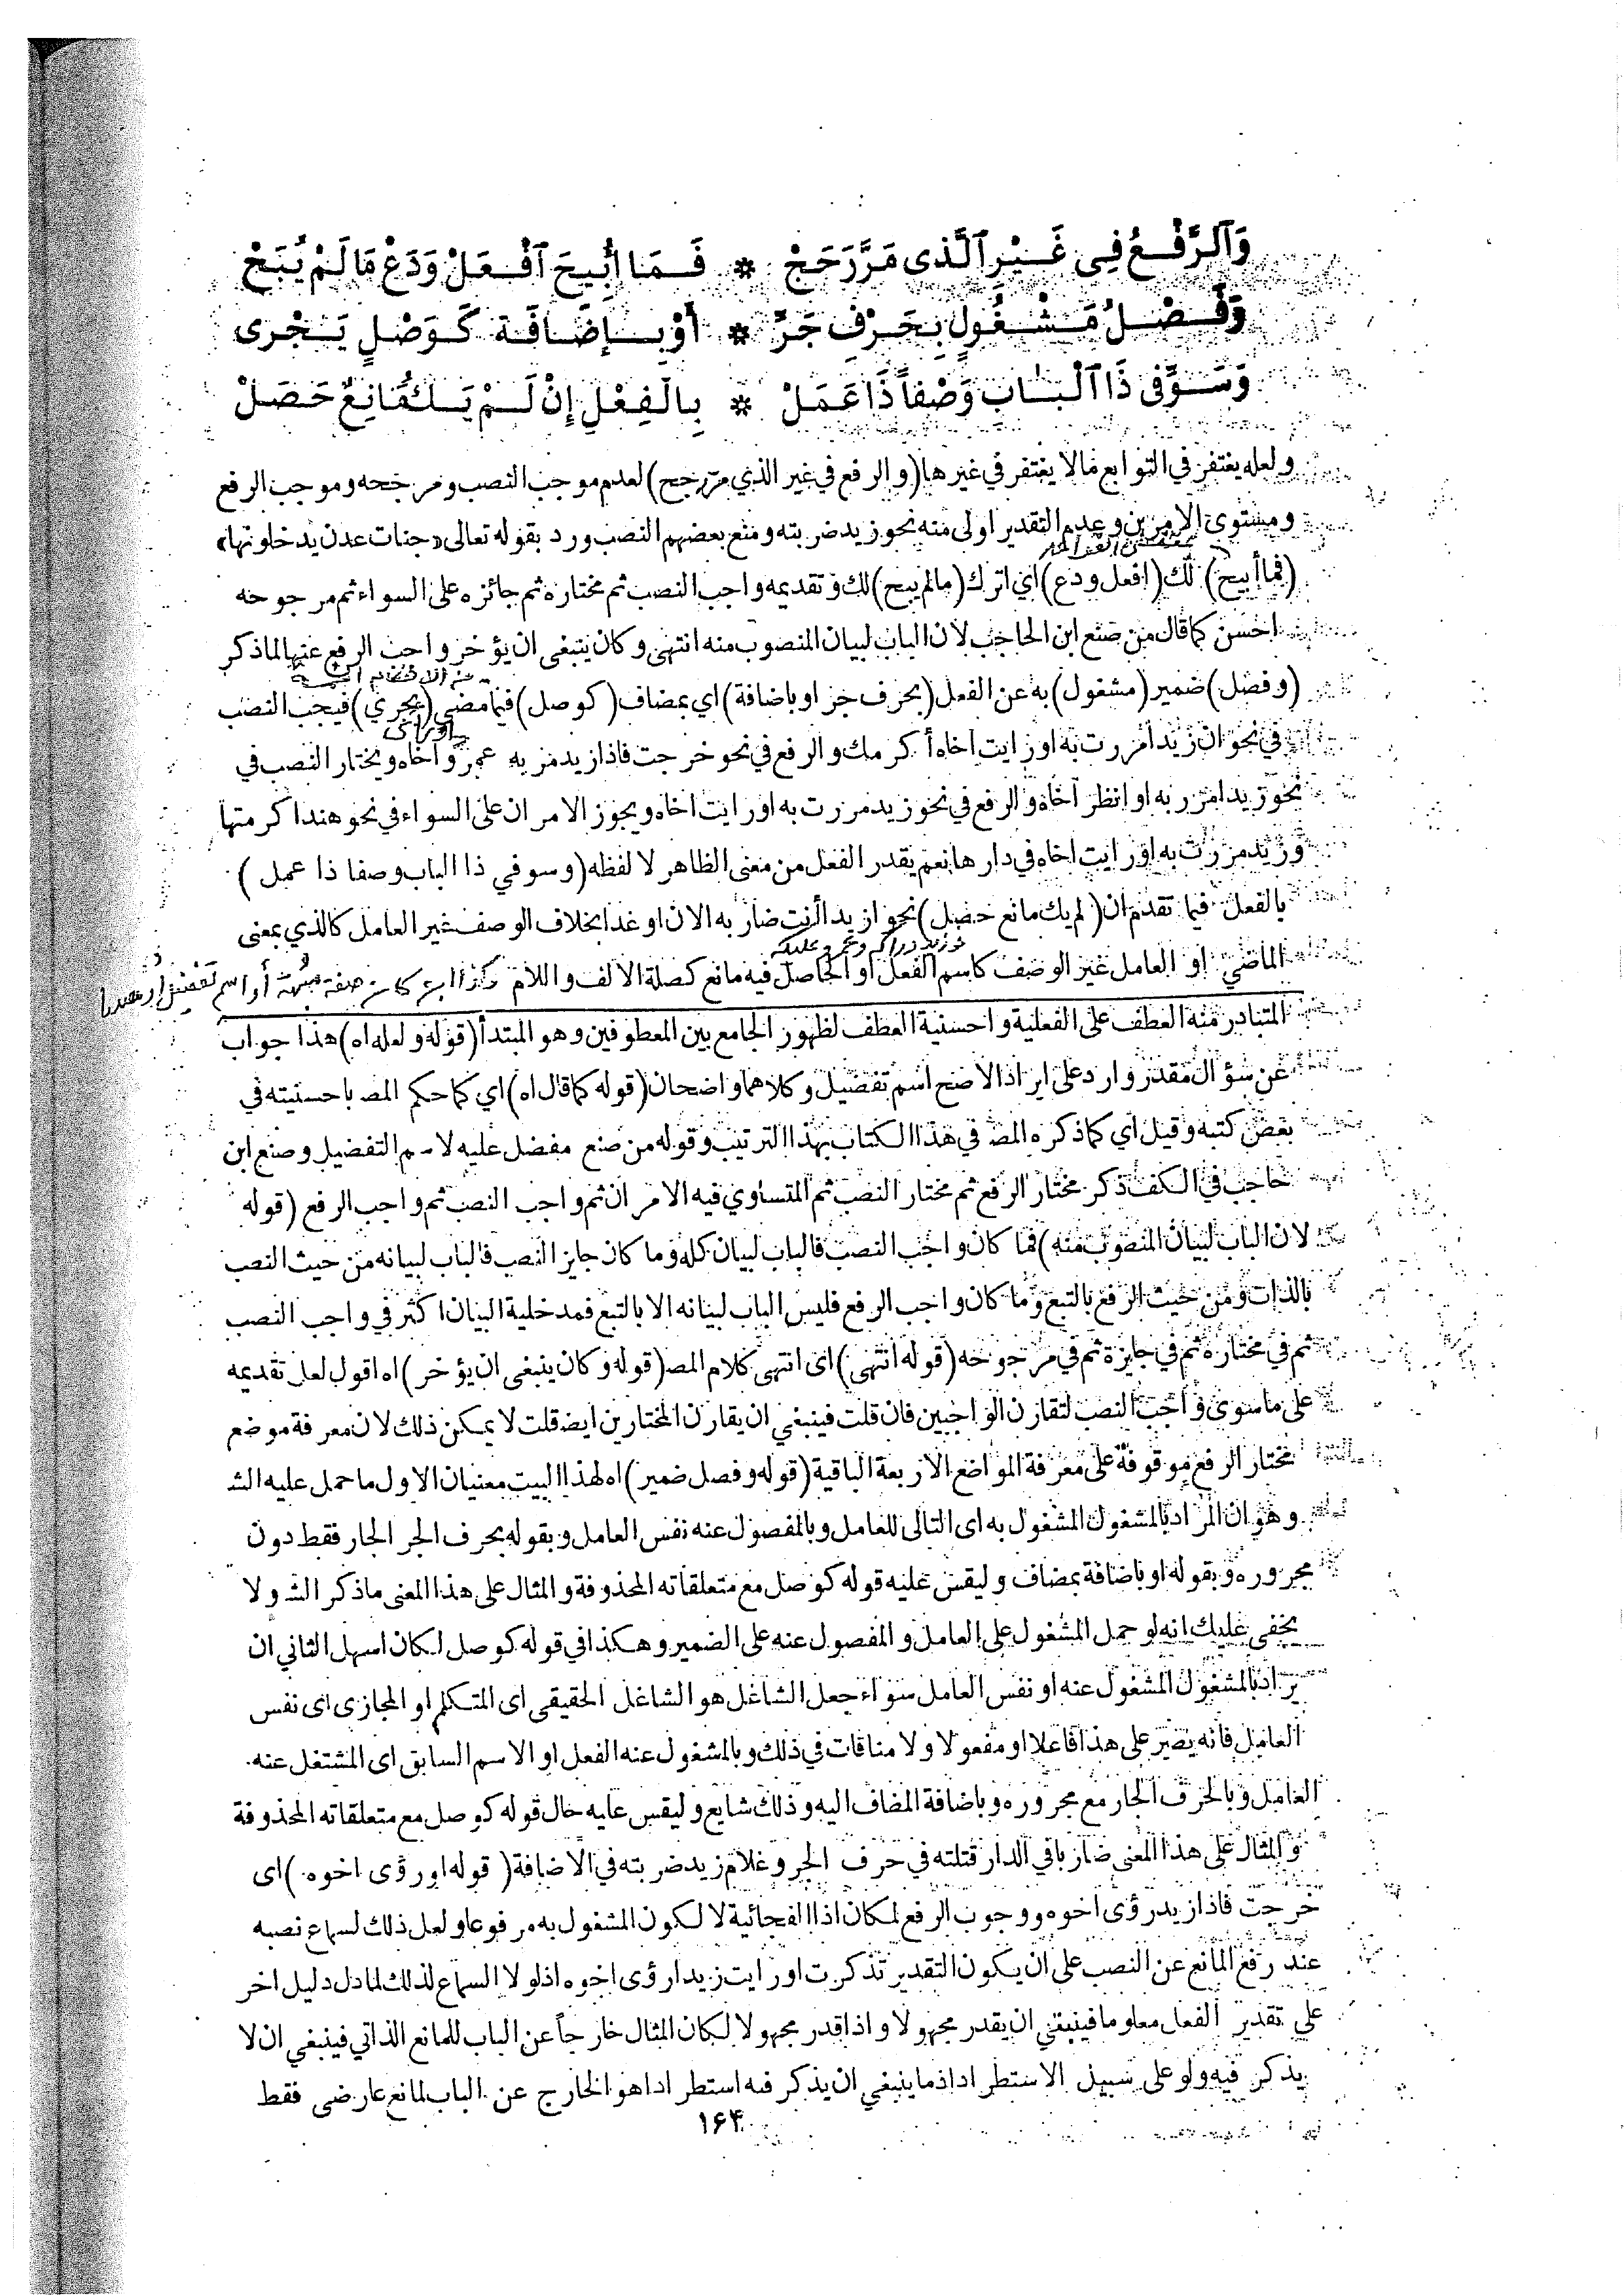 وَٱلرَّفْعُ فِي غَيْرِ ٱلَّذِى مَرَّ رَجَحْ * فَمَا أُبِيحَ ٱفْعَلْ وَدَعْ مَا لَمْ يُبَحْ
وَفَصْلُ مَشْغُولٍ بِحَرْفِ جَرِّ * أَوْ بِإِضَافَة كَوَصْلٍ يَجْرِى
وَسَوِّفى ذَا ٱلْبَابِ وَصْفاً ذَا عَمَلْ * بِالْفِعْلِ إِنْ لَمْ يَكُ مَانِعٌ حَصَلْ
ولعله يغتفر في التوابع مالا يغتفر في غيرها (والرفع في غير الذي مرّ رجح) لعدم موجب النصب ومرجحه وموجب الرفع
ومستوى الامرين وعدم التقدير اولى منه نحو زيد ضربته ومنع بعضهم النصب ورد بقوله تعالى «جنات عدن يدخلونها»
(فما أبيح) لك (افعل ودع) اي اترك (مالم يبح) لك وتقديمه واجب النصب ثم مختاره ثم جائزه على السواء ثم مرجوحه
احسن كما قال من صنع ابن الحاجب لان الباب لبيان المنصوب منه انتهى وكان ينبغي ان يؤخر واجب الرفع عنها لما ذكر
(وفصل) ضمير (مشغول) به عن الفعل (بحرف جر او باضافة) اي بمضاف (كوصل) فيما مضى (يجري) فيجب النصب
في نحو ان زيدا مررت به او رايت اخاه أكرمك والرفع في نحو خرجت فاذا زيد مر به عمرو او اخاه ويختار النصب في
نحو زيدا امرر به او انظر اخاه والرفع في نحو زيد مررت به او رايت اخاه ويجوز الامران على السواء في نحو هند اكرمتها
وزيد مررت به او رايت اخاه في دارها نعم يقدر الفعل من معنى الظاهر لا لفظه (وسو في ذا الباب وصفا ذا عمل)
بالفعل فيما تقدم ان (لم يك مانع حصل) نحو ازيدا أنت ضاربه الان او غدا بخلاف الوصف غير العامل كالذي بمعنى
الماضي او العامل غير الوصف كاسم الفعل او الحاصل فيه مانع كصلة الالف واللام
المتبادر منه العطف على الفعلية واحسنية العطف لظهور الجامع بين المعطوفين وهو المبتدأ (قوله ولعله اه) هذا جواب
عن سؤال مقدر وارد على ايراد الاصح اسم تفضيل وكلاهما واضحان (قوله كما قال اه) اي كما حكم المصـ باحسنيته في
بعض كتبه وقيل اي كما ذكره المصـ في هذا الكتاب بهذا الترتيب وقوله من صنع مفضل عليه لاسم التفضيل وصنع ابن
حاجب في الكف ذكر مختار الرفع ثم مختار النصب ثم المتساوي فيه الامران ثم واجب النصب ثم واجب الرفع (قوله
لان الباب لبيان المنصوب منه) فما كان واجب النصب فالباب لبيان كله وما كان جايز النصب فالباب لبيانه من حيث النصب
بالذات ومن حيث الرفع بالتبع وما كان واجب الرفع فليس الباب لبيانه الا بالتبع فمدخلية البيان اكثر في واجب النصب
ثم في مختاره ثم في جايزه ثم في مرجوحه (قوله انتهى) اى انتهى كلام المصـ (قوله وكان ينبغى ان يؤخر) اه اقول لعل تقديمه
على ما سوى واجب النصب لتقارن الواجبين فان قلت فينبغي ان يقارن المختارين ايضـ قلت لا يمكن ذلك لان معرفة موضع
مختار الرفع موقوفة على معرفة المواضع الاربعة الباقية (قوله وفصل ضمير) اه لهذا البيت معنيان الاول ما حمل عليه الشـ
وهو ان المراد بالمشغول المشغول به اى التالى للعامل وبالمفصول عنه نفس العامل وبقوله بحرف الجر الجار فقط دون
مجروره وبقوله او باضافة بمضاف وليقس عليه قوله كوصل مع متعلقاته المحذوفة والمثال على هذا المعنى ما ذكر الشـ ولا
يخفى عليك انه لو حمل المشغول على العامل والمفصول عنه على الضمير وهكذا في قوله كوصل لكان اسهل الثاني ان
يراد بالمشغول المشغول عنه او نفس العامل سواء جعل الشاغل هو الشاغل الحقيقى اى المتكلم او المجازى اى نفس
العامل فانه يصير على هذا فاعلا او مفعولا ولا منافات في ذلك وبالمشغول عنه الفعل او الاسم السابق اى المشتغل عنه
العامل وبالحرف الجار مع مجروره وباضافة المضاف اليه وذلك شايع وليقس عليه حال قوله كوصل مع متعلقاته المحذوفة
والمثال على هذا المعنى ضاربا في الدار قتلته في حرف الجر وغلام زيد ضربته في الاضافة (قوله او رؤى اخوه) اى
خرجت فاذا زيد رؤى اخوه ووجوب الرفع لمكان اذا الفجائية لا لكون المشغول به مرفوعا ولعل ذلك لسماع نصبه
عند رفع المانع عن النصب على ان يكون التقدير تذكرت او رايت زيدا رؤى اخوه اذ لولا السماع لذلك لما دل دليل اخر
على تقدير الفعل معلوما فينبغي ان يقدر مجهولا واذا قدر مجهولا لكان المثال خارجاً عن الباب للمانع الذاتي فينبغي ان لا
يذكر فيه ولو على سبيل الاستطراد اذ ما ينبغي ان يذكر فيه استطرادا هو الخارج عن الباب لمانع عارضى فقط
۱۶۴